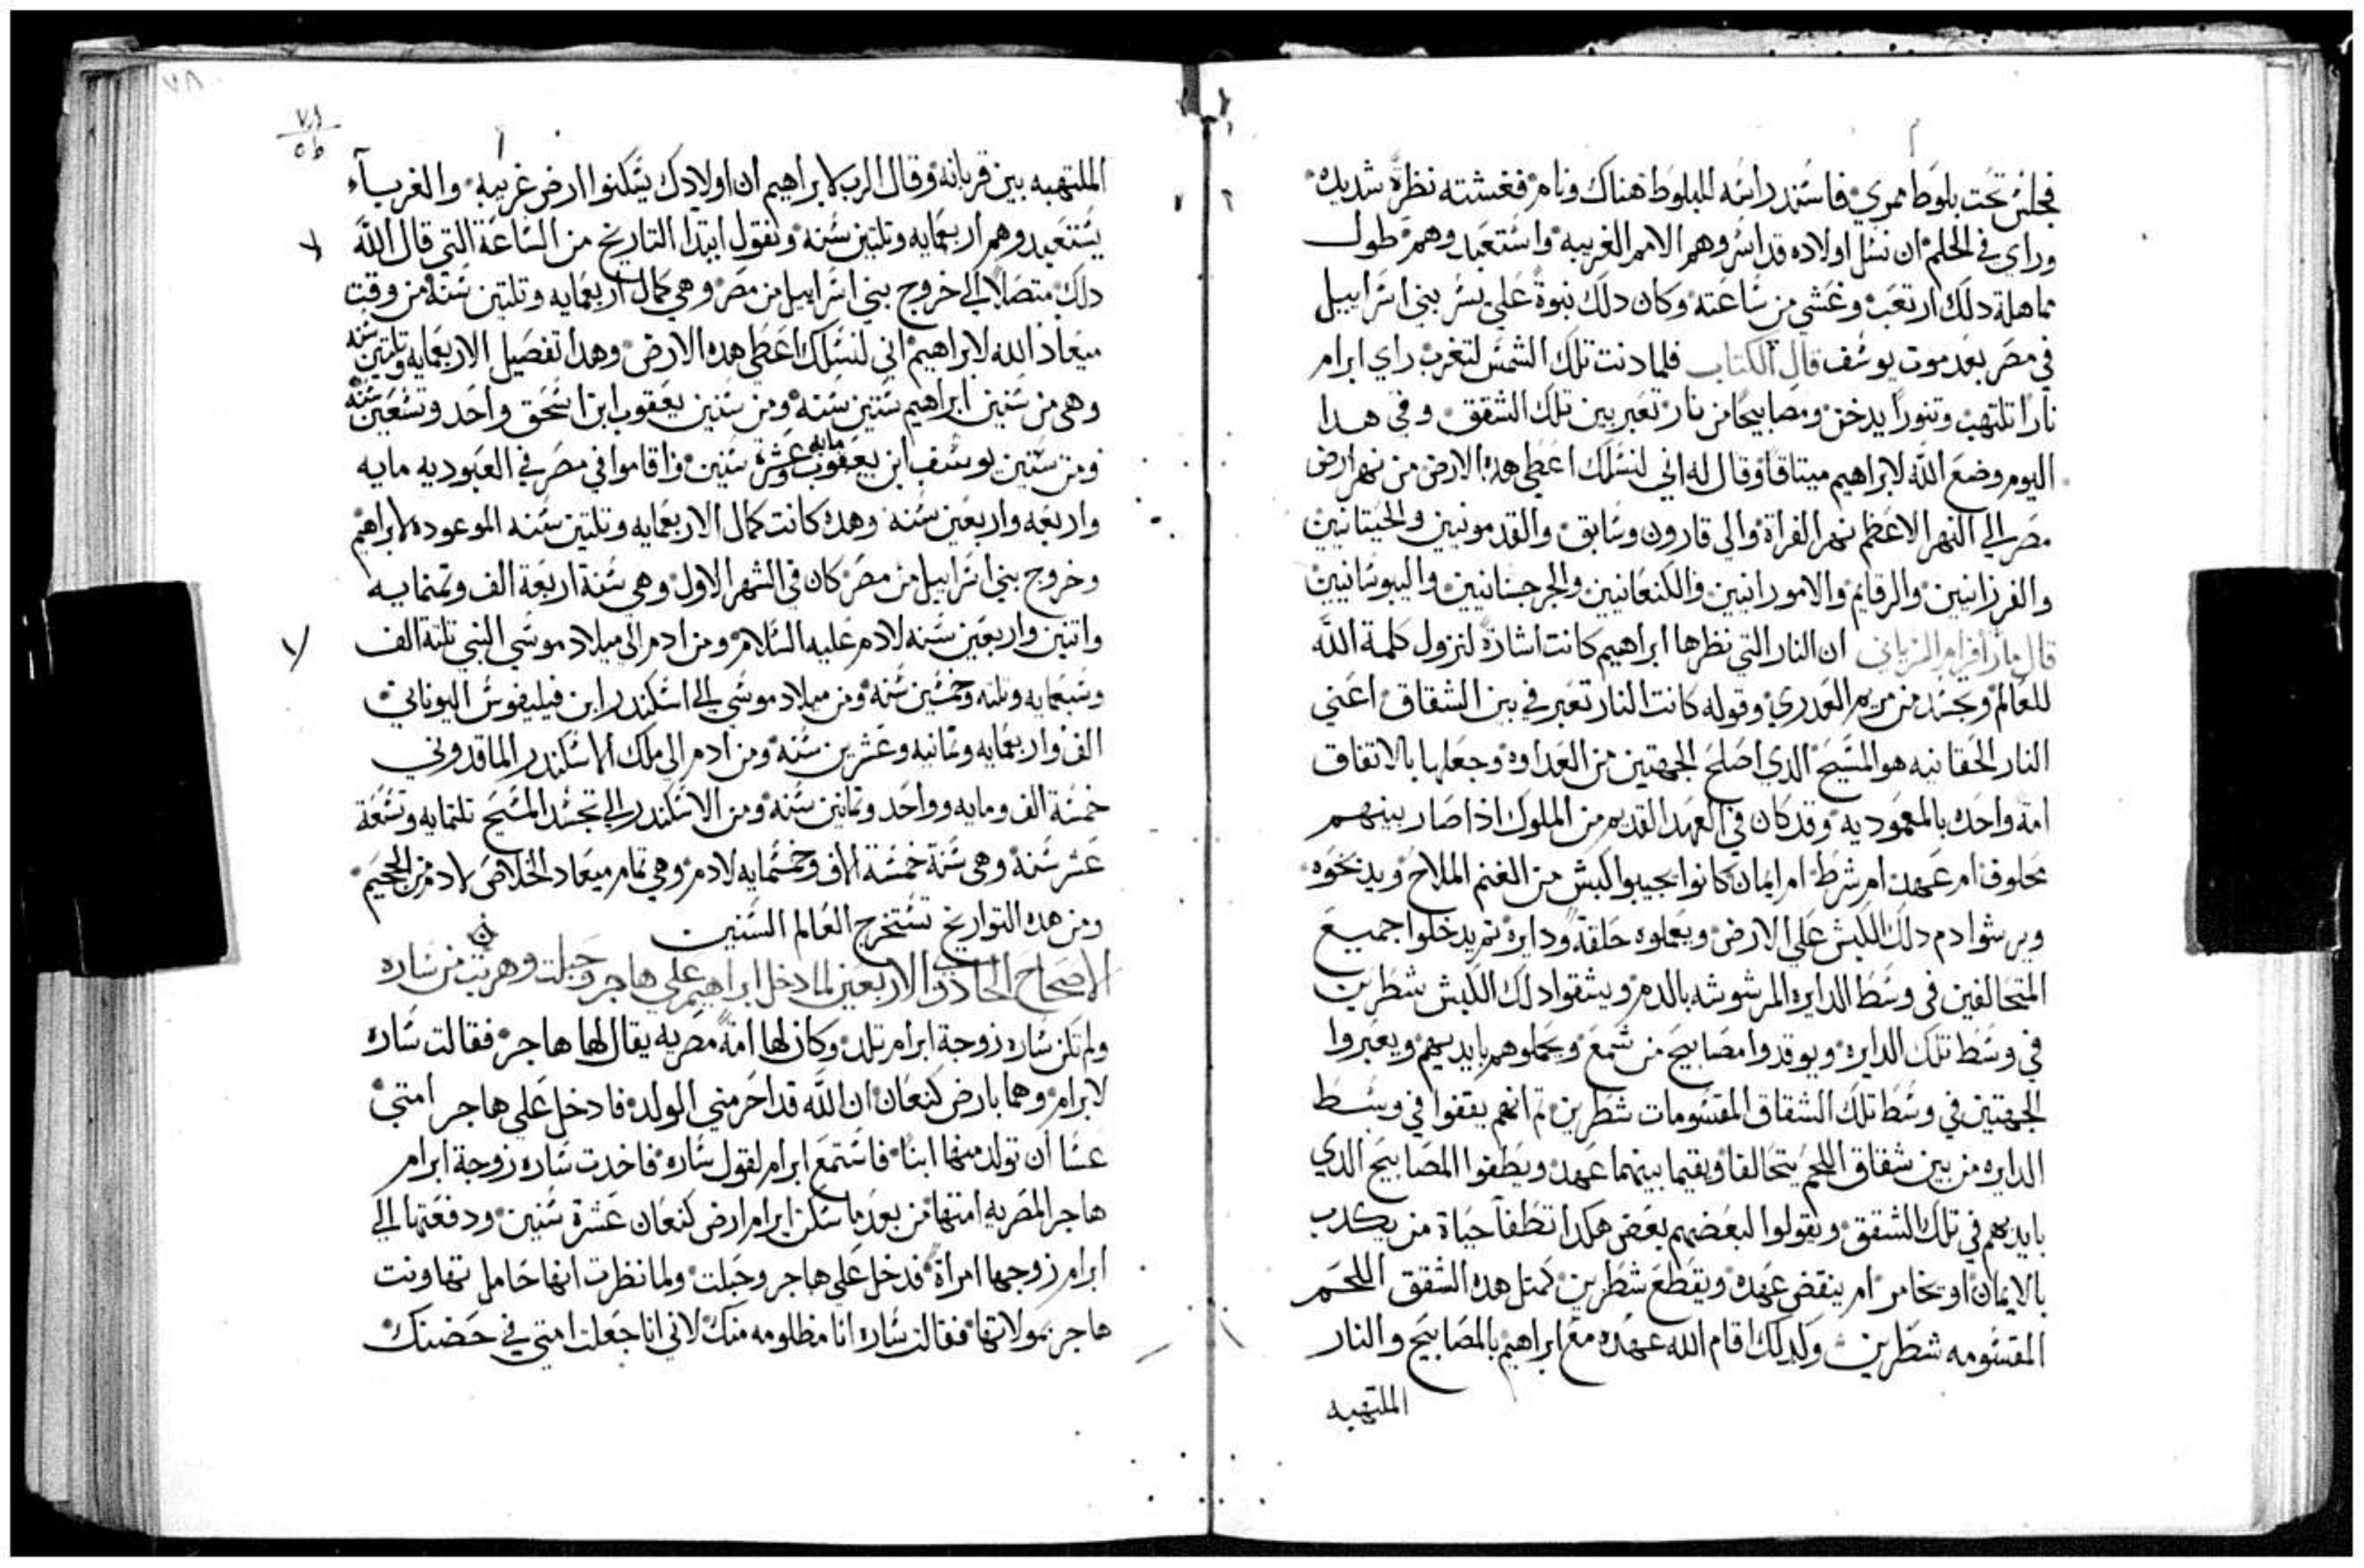 فجلس تحت بلوط ممري فاسند راسه للبلوط هناك ونام فغشته نظرة شديده
وراي في الحلم ان نسل اولاده قد اسروهم الامم الغريبه واستعبدوهم طول
ماهلة دلك ارتعب وغشي من ساعته وكان دلك نبوة علي بني اسراييل
في مصر بعد موت يوسف قال الكتاب فلما دنت تلك الشمس لتغرب راي ابرام
نارا تلتهب وتنورا يدخن ومصابيحا من نار تعبر بين تلك الشقق وفي هدا
اليوم وضع الله لابراهيم ميتاقا وقال له اني لنسلك اعطي هده الارض من نهر ارض
مصر الي النهر الاعظم نهر الفراة والي قارون وسابق والقدمونيين والحيتانيين
والفرزانيين والرفايم والامورانيين والكنعانيين والجرجسانيين واليبوسانيين
قال مار افرام السرياني ان النار التي نظرها ابراهيم كانت اشارة لنزول كلمة الله
للعالم وتجسد من مريم العدري وقوله كانت النار تعبر في بين الشقاق اعني
النار الحقانيه هو المسيح الدي اصلح الجهتين من العداوه وجعلها بالاتفاق
امة واحده بالمعموديه وقد كان في العهد القديم من الملوك اذا صار بينهم
محلوف ام عهد ام شرط ام ايمان كانوا يجيبوا كبش من الغنم الملاح ويدبحوه
ويرشوا دم دلك الكبش علي الارض ويعملوه حلقة ودايرة تم يدخلوا جميع
المتحالفين في وسط الدايره المرشوشه بالدم ويشقوا دلك الكبش شطرين
في وسط تلك الدايره ويوقدوا مصابيح من شمع ويحملوهم بايديهم ويعبروا
الجهتين في وسط تلك الشقاق المقسومات شطرين تم انهم يقفوا في وسط
الدايره من بين شقاق اللحم يتحالفا ويقيما بينهما عهد ويطفوا المصابيح الدي
بايديهم في تلك الشقق ويقولوا لبعضهم بعض هكدا تطفا حياة من يكدب
بالايمان او يخامر ام ينقض عهده ويقطع شطرين كمتل هده الشقق اللحم
المقسومه شطرين ولدلك اقام الله عهده مع ابراهيم بالمصابيح والنار
الملتهبه
٧٨
الملتهبه بين قربانه وقال الرب لابراهيم ان اولادك يسكنوا ارض غريبه والغربآء
يستعبدوهم اربعمايه وتلتين سنه ونقول ابتدا التاريخ من الساعة التي قال الله
دلك متصلا الي خروج بني اسراييل من مصر وهي كمال اربعمايه وتلتين سنه من وقت
ميعاد الله لابراهيم اني لنسلك اعطي هده الارض وهدا تفصيل الاربعمايه وتلتين سنه
وهي من سنين ابراهيم ستين سنه ومن سنين يعقوب ابن اسحق واحد وتسعين سنه
ومن سنين يوسف ابن يعقوب مايه وعشرة سنين واقاموا في مصر في العبوديه مايه
واربعه واربعين سنه وهده كانت كمال الاربعمايه وتلتين سنه الموعوده لابراهيم
وخروج بني اسراييل من مصر كان في الشهر الاول وهي سنة اربعة الف وتمنمايه
واتنين واربعين سنه لادم عليه السلام ومن ادم الي ميلاد موسي النبي تلتة الف
وسبعمايه وتلته وخمسين سنه ومن ميلاد موسي الي اسكندر ابن فيليفوس اليوناني
الف واربعمايه وتمانيه وعشرين سنه ومن ادم الي ملك الاسكندر الماقدوني
خمسة الف ومايه وواحد وتمانين سنه ومن الاسكندر الي تجسد المسيح تلتمايه وتسعة
عشر سنة وهي سنة خمسة الاف وخمسمايه لادم وهي تمام ميعاد الخلاص لادم من الجحيم
ومن هده التواريخ تستخرج العالم السنين
الاصحاح الحادي والاربعين لما دخل ابراهيم علي هاجر وحبلت وهربت من ساره
ولم تكن ساره زوجة ابرام تلد وكان لها امة مصريه يقال لها هاجر فقالت ساره
لابرام وهما بارض كنعان ان الله قد احرمني الولد فادخل علي هاجر امتي
عسا ان تولد منها ابنا فاستمع ابرام لقول ساره فاخدت ساره زوجة ابرام
هاجر المصريه امتها من بعد ما سكن ابرام ارض كنعان عشرة سنين ودفعتها الي
ابرام زوجها امراة فدخل علي هاجر وحبلت ولما نظرت انها حامل تهاونت
هاجر بمولاتها فقالت ساره انا مظلومه منك لاني انا جعلت امتي في حضنك